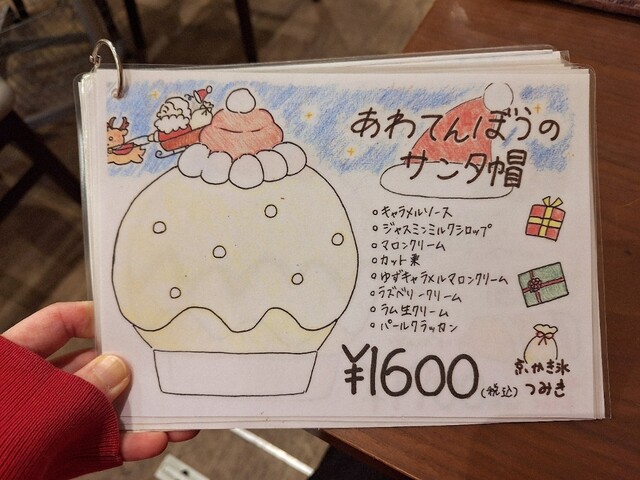 あわてんぼうの
サンタ帽
○キャラメルソース
○ジャスミンミルクシロップ
○マロンクリーム
○カット栗
○ゆずキャラメルマロンクリーム
○ラズベリークリーム
○ラム生クリーム
○パールクラッカン
¥1600(税込)
京かき氷
つみき